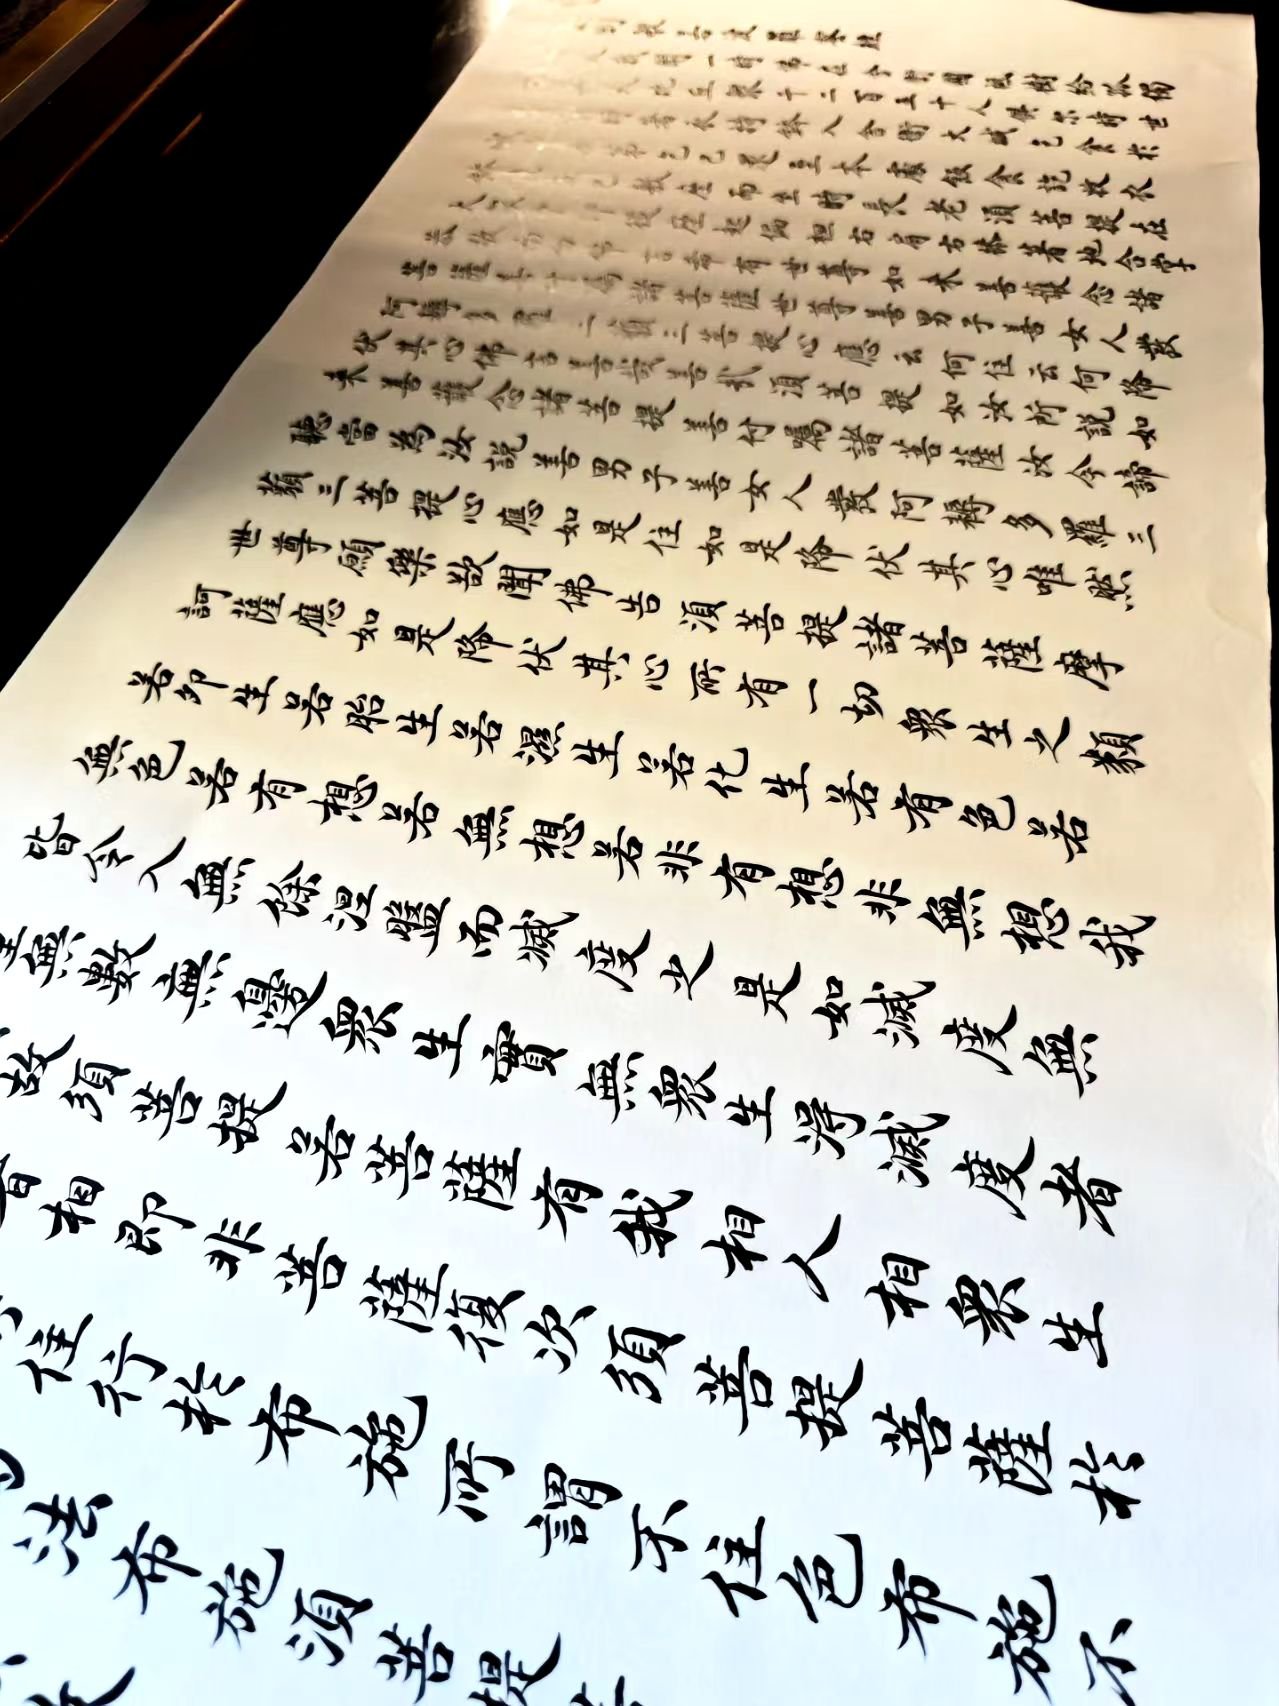 般若波羅蜜經
我聞一時佛在舍衛國祇樹給孤獨
大比丘眾千二百五十人俱爾時世
時著衣持鉢入舍衛大城乞食於
第乞已還至本處飯食訖收衣
已敷座而坐時長老須菩提在
大眾中即從座起偏袒右肩右膝著地合掌
恭敬而白佛言希有世尊如來善護念諸
菩薩善付囑諸菩薩世尊善男子善女人發
阿耨多羅三藐三菩提心應云何住云何降
伏其心佛言善哉善哉須菩提如汝所說如
來善護念諸菩提善付囑諸菩薩汝今諦
聽當為汝說善男子善女人發阿耨多羅三
藐三菩提心應如是住如是降伏其心唯然
世尊願樂欲聞佛告須菩提諸菩薩摩
訶薩應如是降伏其心所有一切眾生之類
若卵生若胎生若濕生若化生若有色若
無色若有想若無想若非有想非無想我
皆令入無餘涅盤而滅度之是如滅度無
量無數無邊眾生實無眾生得滅度者
故須菩提若菩薩有我相人相眾生
者相即非菩薩復次須菩提菩薩於
住行於布施所謂不住色布施不
法布施須菩提菩